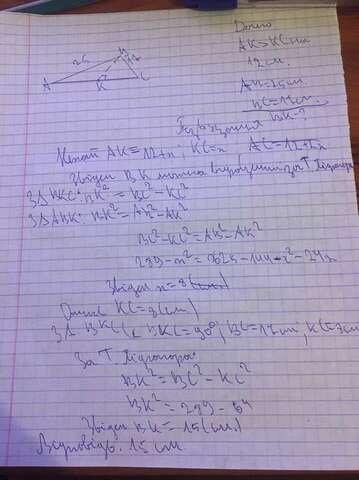 Дано
AK > KC на
12 см.
AB = 25 см
BC = 17 см.
BK - ?
25 B 17
A K C
Розв'язання
Нехай AK = 12+x; KC = x AC = 12+2x
Звідси BK можна за Т. Піфагора
З Δ BKC: BK² = BC² - KC²
З Δ ABK: BK² = AB² - AK²
BC² - KC² = AB² - AK²
289 - x² = 625 - 144 - x² - 24x
Звідси x = 8 (см)
KC = (см)
З Δ BKC ∠ BKC = 90°, BC = 17 см, KC = см
За Т. Піфагора
BK² = BC² - KC²
BK² = 289 - 64
Звідси BK = 15 (см.)
Відповідь. 15 см.